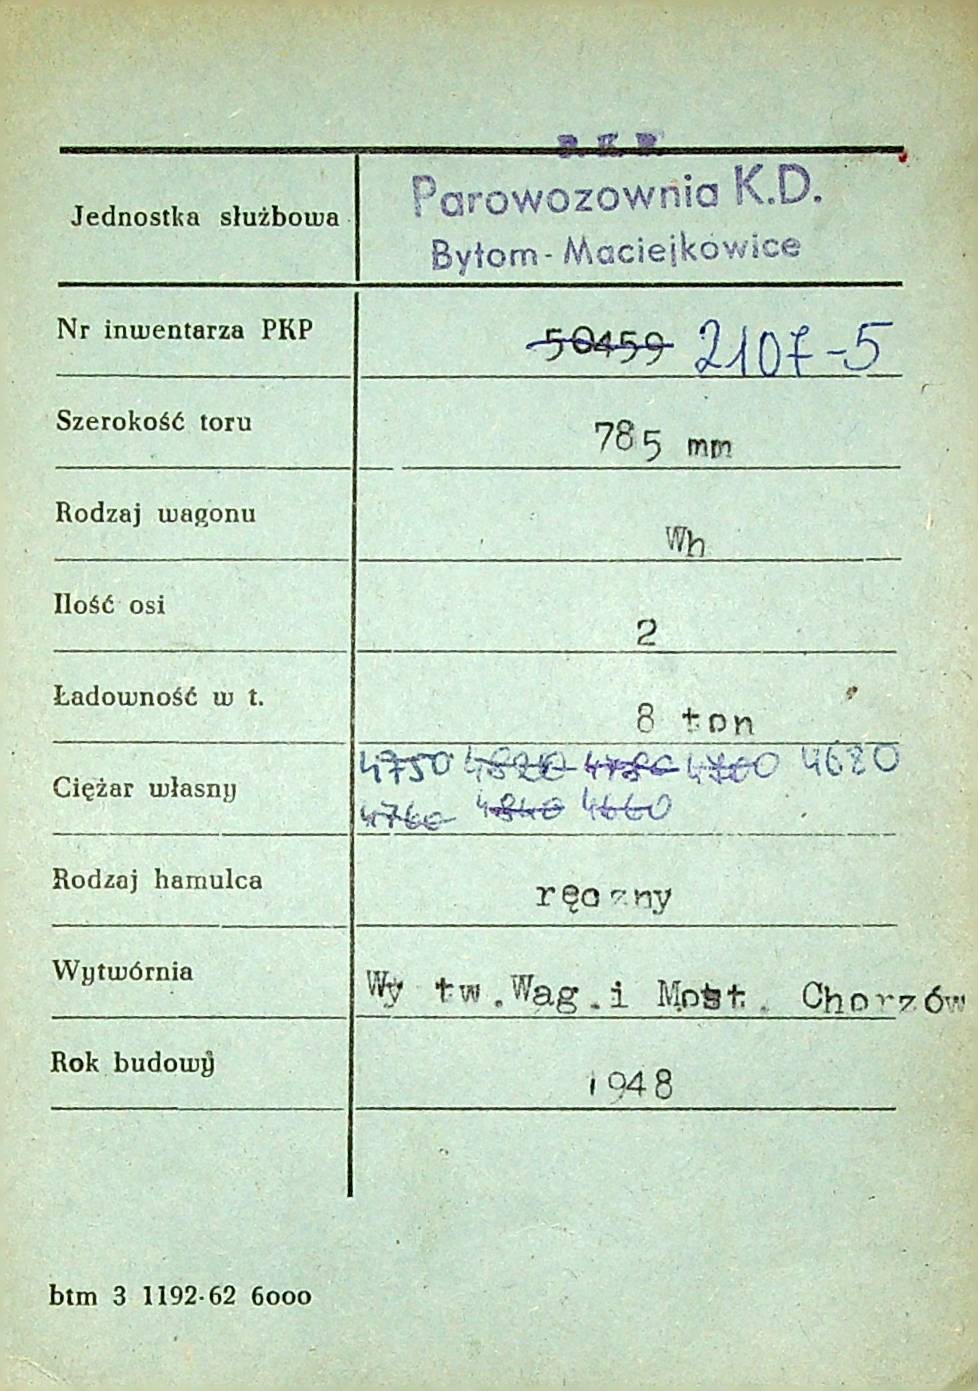 P. K. P.
Parowozownia K.D.
Jednostka służbowa
Bytom-Maciejkowice
Nr inwentarza PKP 50459 2107-5
Szerokość toru 785 mm
Rodzaj wagonu Wh
Ilość osi 2
Ładowność w t. 8 ton
4750 4820 4780 4700 4680
Ciężar własny
4760 4840 4660
Rodzaj hamulca ręczny
Wytwórnia Wytw.Wag.i Most. Chorzów
Rok budowy 1948
btm 3 1192-62 6000